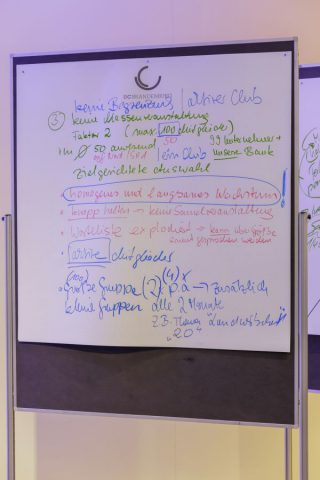 keine Begrenzung / aktiver Club
③ keine Massenveranstaltung
Faktor 2 (max. 100 Mitglieder)
50 50 99 Unternehmer +
ein Club unsere Bank
Zielgerichtete Auswahl
homogenes und langsames Wachstum !
• knapp halten → keine Samelveranstaltung
• Warteliste explodiert → kann über Größe
gesprochen werden
• aktive Mitglieder
(100) (4)x
• Große Gruppe (2) p.a → zusätzlich
kleine Gruppen alle 2 Monate
z.B. Thema "Landwirtschaft"
"20"